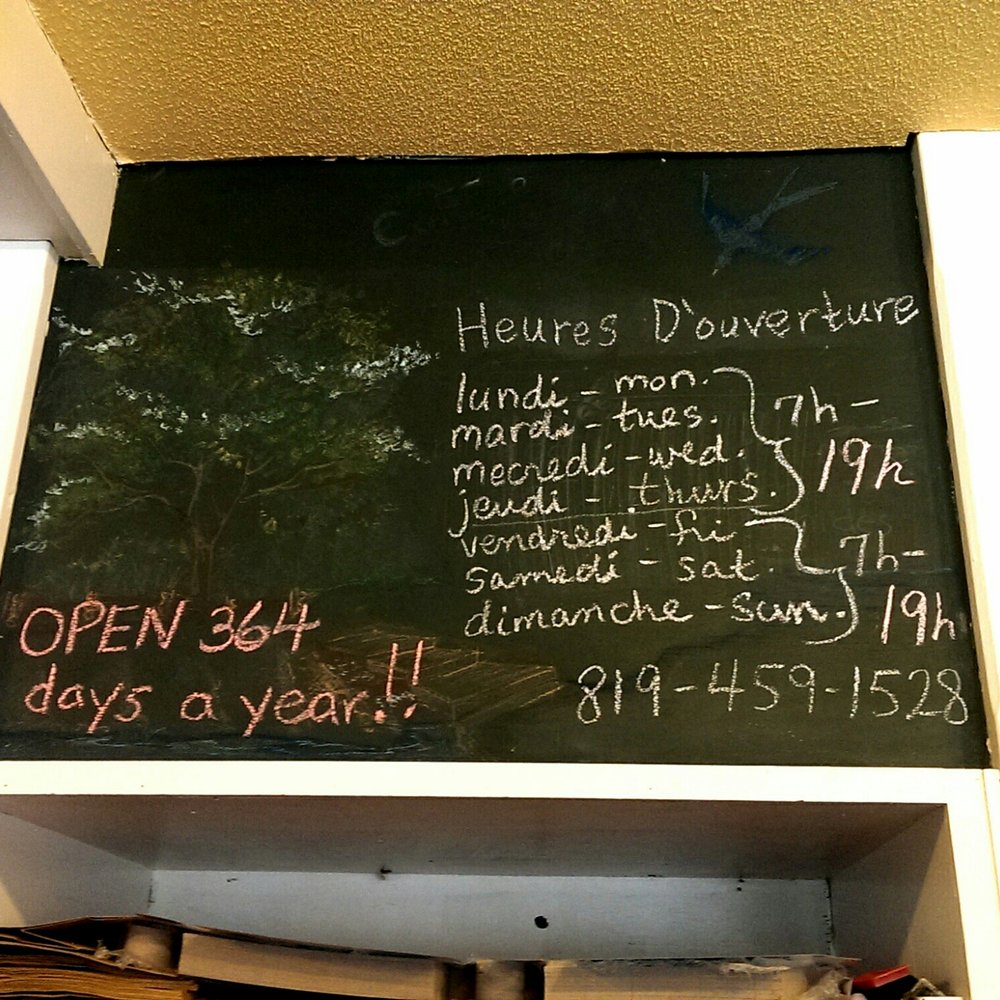 Heures D'ouverture
lundi - mon.
mardi - tues.
mecredi - wed.
jeudi - thurs.
7h -
19h
vendredi - fri
samedi - sat.
dimanche - sun.
7h -
19h
OPEN 364
days a year!!
819-459-1528